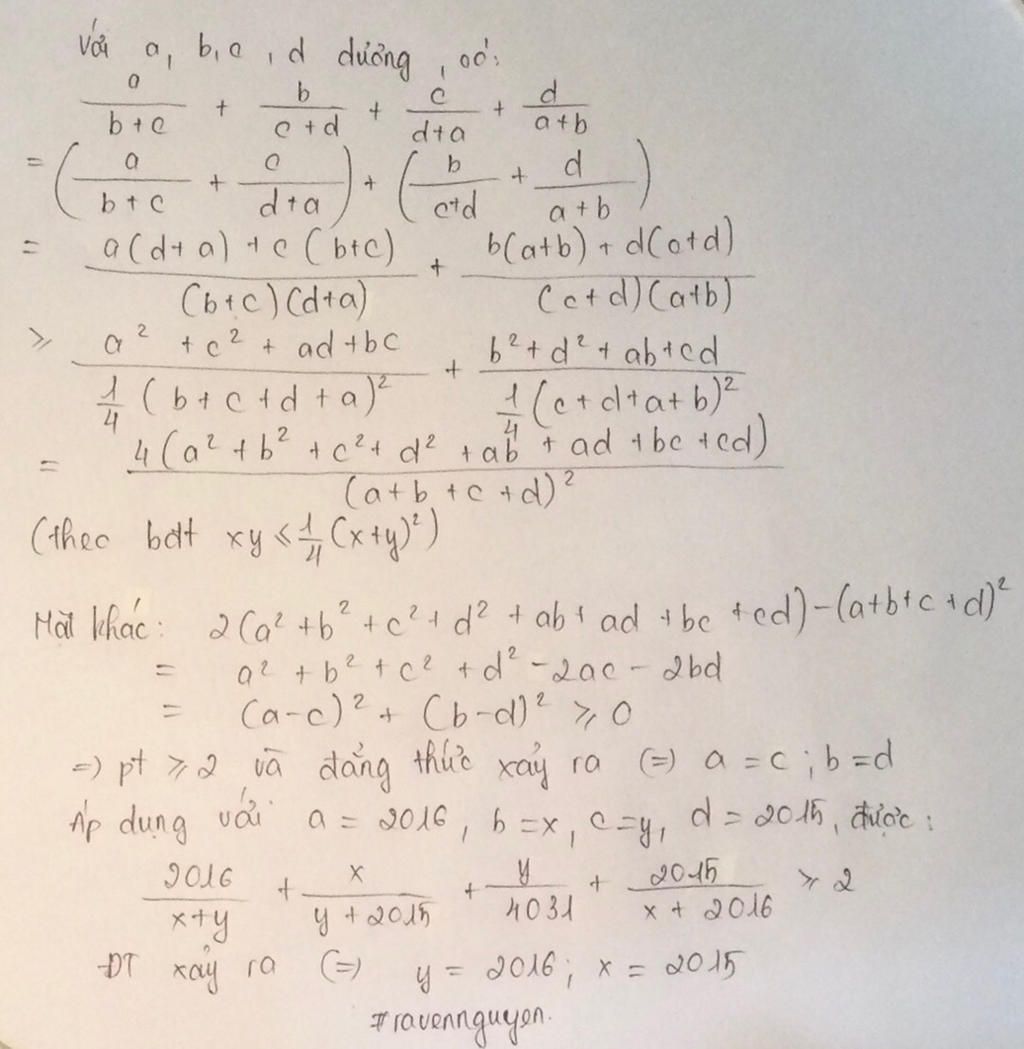 Với a, b, c, d dương, có:
a/(b+c) + b/(c+d) + c/(d+a) + d/(a+b)
= (a/(b+c) + c/(d+a)) + (b/(c+d) + d/(a+b))
= (a(d+a) + c(b+c))/((b+c)(d+a)) + (b(a+b) + d(c+d))/((c+d)(a+b))
≥ (a² + c² + ad + bc)/(1/4 (b+c+d+a)²) + (b² + d² + ab + cd)/(1/4 (c+d+a+b)²)
= 4(a² + b² + c² + d² + ab + ad + bc + cd)/(a+b+c+d)²
(theo bđt xy ≤ 1/4 (x+y)²)
Mặt khác: 2(a² + b² + c² + d² + ab + ad + bc + cd) - (a+b+c+d)²
= a² + b² + c² + d² - 2ac - 2bd
= (a-c)² + (b-d)² ≥ 0
=> pt ≥ 2 và đẳng thức xảy ra (=) a = c ; b = d
Áp dụng với a = 2016, b = x, c = y, d = 2015, được:
2016/(x+y) + x/(y+2015) + y/4031 + 2015/(x+2016) ≥ 2
ĐT xảy ra (=) y = 2016; x = 2015
#ravennguyen.